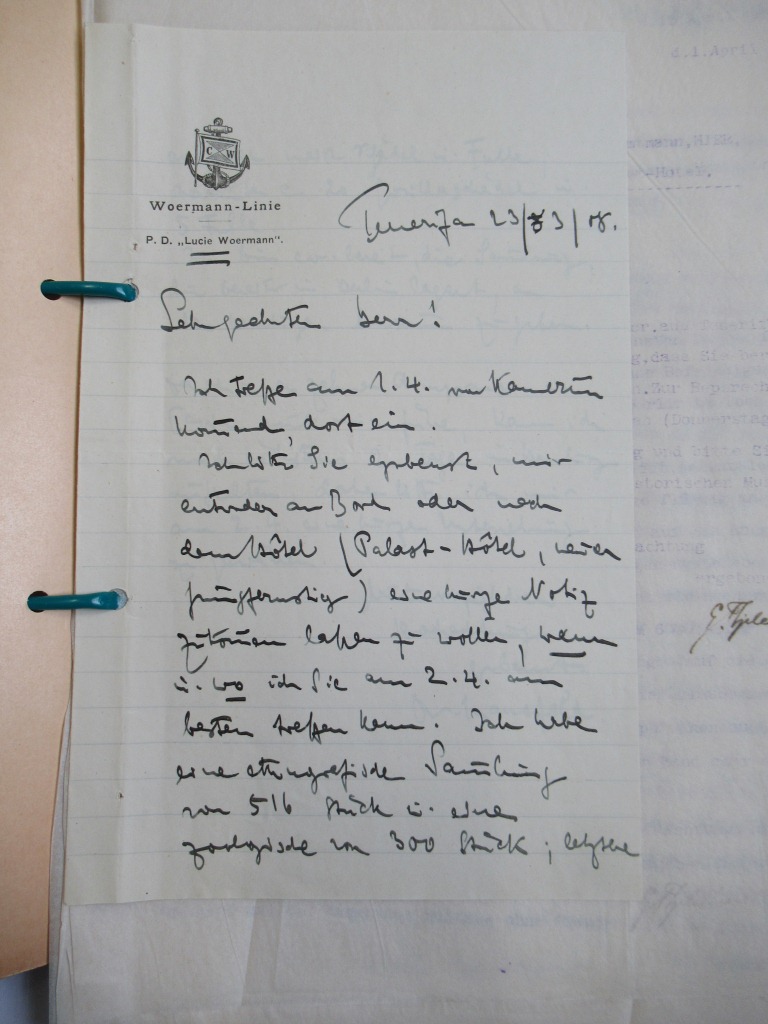 C W
Woermann-Linie
P. D. „Lucie Woermann".
Teneriffa 23/3/08.
Sehr geehrter Herr!
Ich treffe am 1.4. von Kamerun
kommend, dort ein.
Ich bitte Sie ergebenst, mir
entweder an Bord oder nach
dem Hôtel (Palast-Hôtel, neuer
Jungfernstieg) eine kurze Notiz
zukommen laßen zu wollen, wann
u. wo ich Sie am 2.4. am
besten treffen kann. Ich habe
eine ethnografische Sammlung
von 516 Stück u. eine
zoologische von 300 Stück; letztere
d.1.April